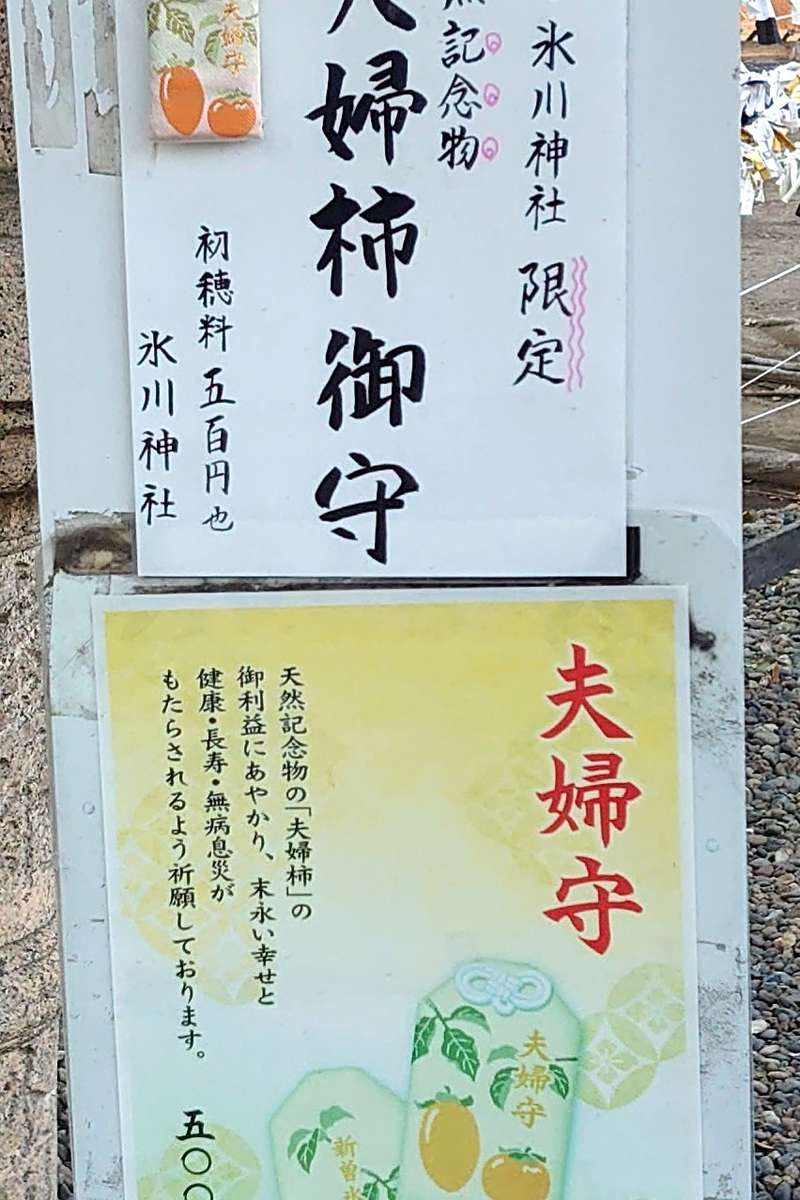 氷川神社 限定
然記念物
夫婦柿御守
初穂料 五百円也
氷川神社
夫婦守
夫婦守
天然記念物の「夫婦柿」の
御利益にあやかり、末永い幸せと
健康・長寿・無病息災が
もたらされるよう祈願しております。
五〇〇
夫婦守
新曽氷